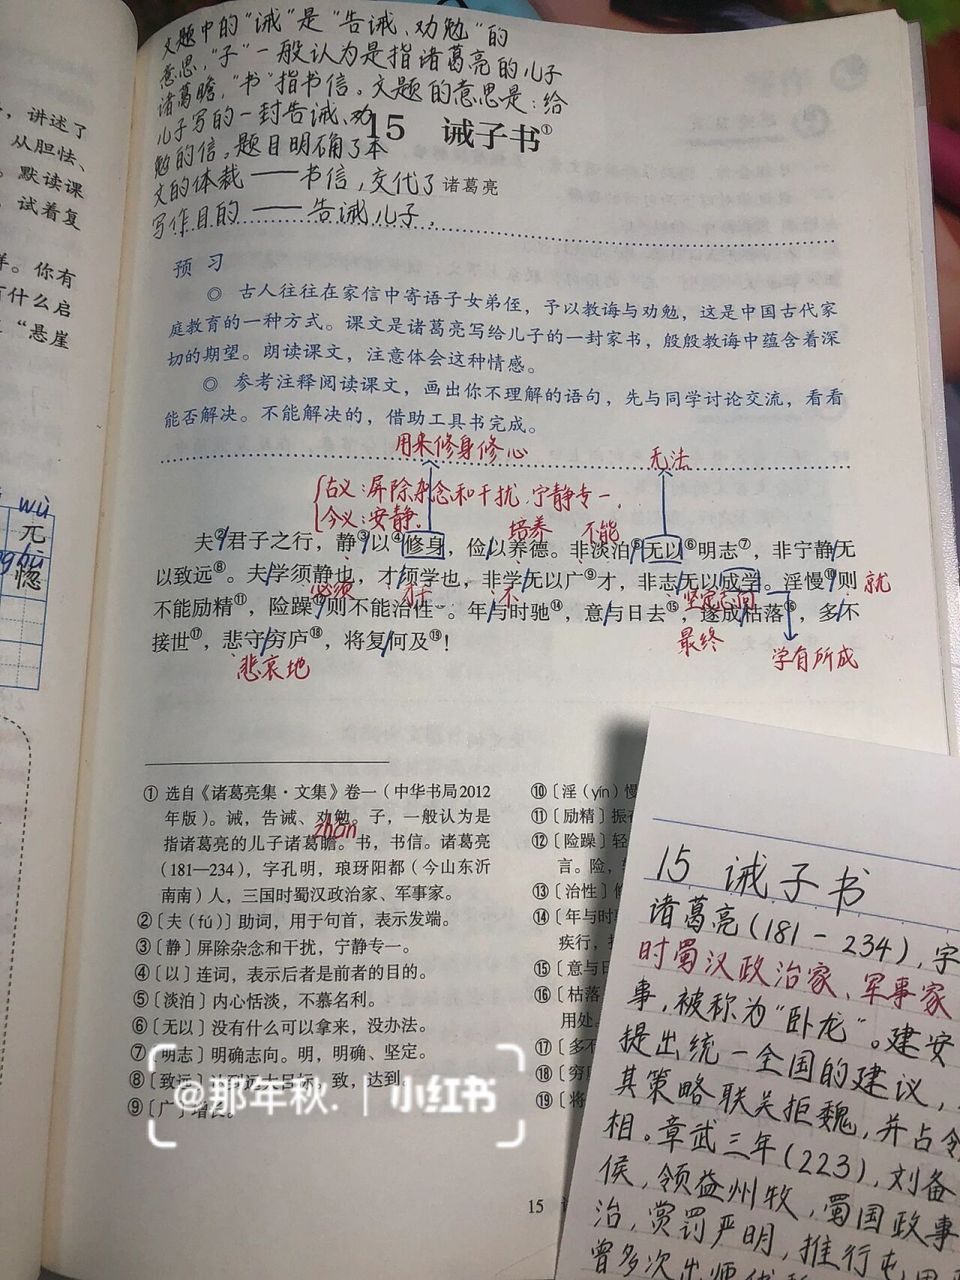 文题中的“诫”是“告诫、劝勉”的
意思,“子”一般认为是指诸葛亮的儿子
诸葛瞻,“书”指书信。文题的意思是:给
儿子写的一封告诫、劝
勉的信。题目明确了本
文的体裁——书信,交代了
写作目的——告诫儿子.
15 诫子书①
诸葛亮
预 习
◎ 古人往往在家信中寄语子女弟侄，予以教诲与劝勉，这是中国古代家
庭教育的一种方式。课文是诸葛亮写给儿子的一封家书，殷殷教诲中蕴含着深
切的期望。朗读课文，注意体会这种情感。
◎ 参考注释阅读课文，画出你不理解的语句，先与同学讨论交流，看看
能否解决。不能解决的，借助工具书完成。
用来修身修心
无法
古义:屏除杂念和干扰,宁静专一.
今义:安静.
培养 不能
夫②君子之行，静③以④修身，俭以养德。非淡泊⑤无以⑥明志⑦，非宁静无
以致远⑧。夫学须静也，才须学也，非学无以广⑨才，非志无以成学。淫慢⑩则
必须 才干 不 坚定志向 就
不能励精⑪，险躁⑫则不能治性⑬。年与时驰⑭，意与日去⑮，遂成枯落⑯，多不
接世⑰，悲守穷庐⑱，将复何及⑲！
最终 学有所成
悲哀地
① 选自《诸葛亮集·文集》卷一（中华书局2012
年版）。诫，告诫、劝勉。子，一般认为是
zhān
指诸葛亮的儿子诸葛瞻。书，书信。诸葛亮
（181—234），字孔明，琅玡阳都（今山东沂
南南）人，三国时蜀汉政治家、军事家。
②〔夫（fú）〕助词，用于句首，表示发端。
③〔静〕屏除杂念和干扰，宁静专一。
④〔以〕连词，表示后者是前者的目的。
⑤〔淡泊〕内心恬淡，不慕名利。
⑥〔无以〕没有什么可以拿来，没办法。
⑦〔明志〕明确志向。明，明确、坚定。
⑧〔致远〕达到远大目标。致，达到。
⑨〔广〕增长。
⑩〔淫（yín）慢
⑪〔励精〕振
⑫〔险躁〕轻
言。险，
⑬〔治性〕
⑭〔年与时
疾行，
⑮〔意与日
⑯〔枯落
用处。
⑰〔多不
⑱〔穷
⑲〔将
15
，讲述了
从胆怯、
。默读课
，试着复
样。你有
什么启
“悬崖
wù
兀
hū
惚
15 诫子书
诸葛亮(181-234),字
时蜀汉政治家、军事家
事,被称为“卧龙”。建安
提出统一全国的建议,
其策略联吴拒魏,并占
相。章武三年(223),刘备
侯,领益州牧,蜀国政事
治,赏罚严明,推行屯
曾多次出师
@那年秋. 小红书